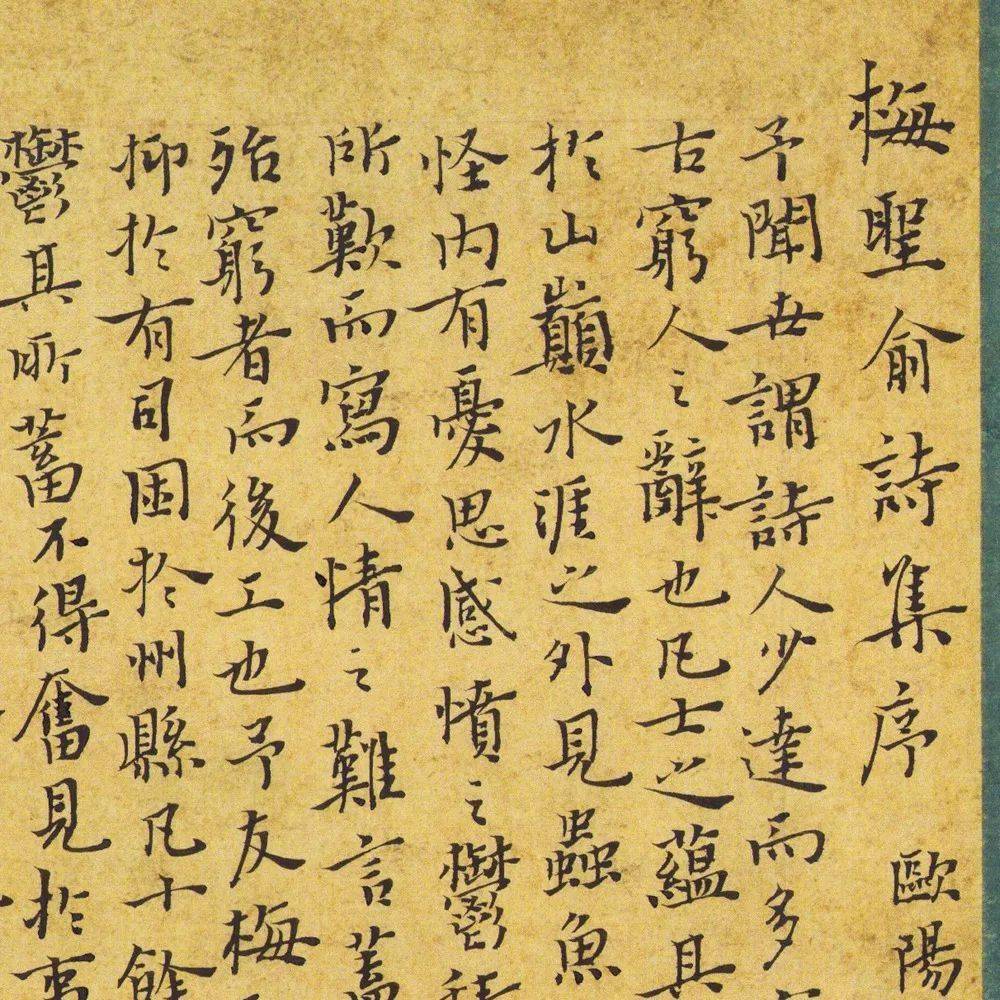 梅聖俞詩集序 歐陽
予聞世謂詩人少達而多
古窮人之辭也凡士之蘊其
於山巔水涯之外見蟲魚
怪内有憂思感憤之鬱
所歎而寫人情之難言蓋
殆窮者而後工也予友梅
抑於有司困於州縣凡十餘
鬱其所蓄不得奮見於事